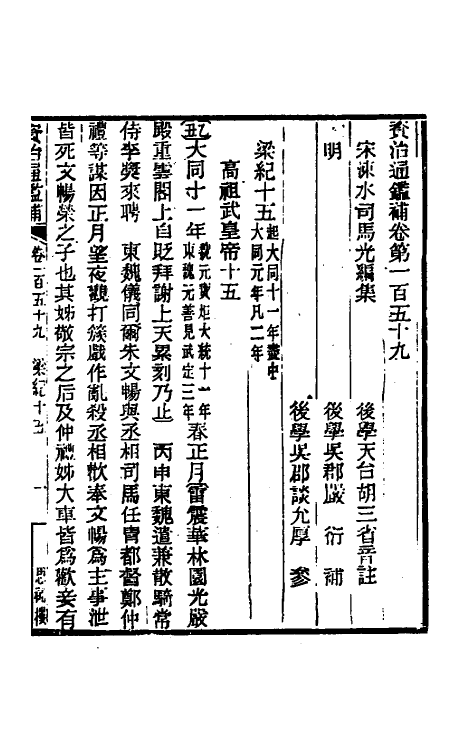 資治通鑑補卷第一百五十九
宋涑水司馬光編集　後學天台胡三省音註
明　後學吳郡嚴　衍　補
後學吳郡談允厚　參
梁紀十五起大同十一年盡中大同元年凡二年
高祖武皇帝十五
乙丑大同十一年魏元寶炬大統十一年東魏元善見武定三年春正月雷震華林園光嚴
殿重雲閣上自貶拜謝上天累刻乃止　丙申東魏遣兼散騎常
侍李奬來聘　東魏儀同爾朱文暢與丞相司馬任胄都督鄭仲
禮等謀因正月望夜觀打簇戲作亂殺丞相歡奉文暢為主事泄
皆死文暢榮之子也其姊敬宗之后及仲禮姊大車皆為歡妾有
資治通鑑補　卷一百五十九　梁紀十五　一　思補樓